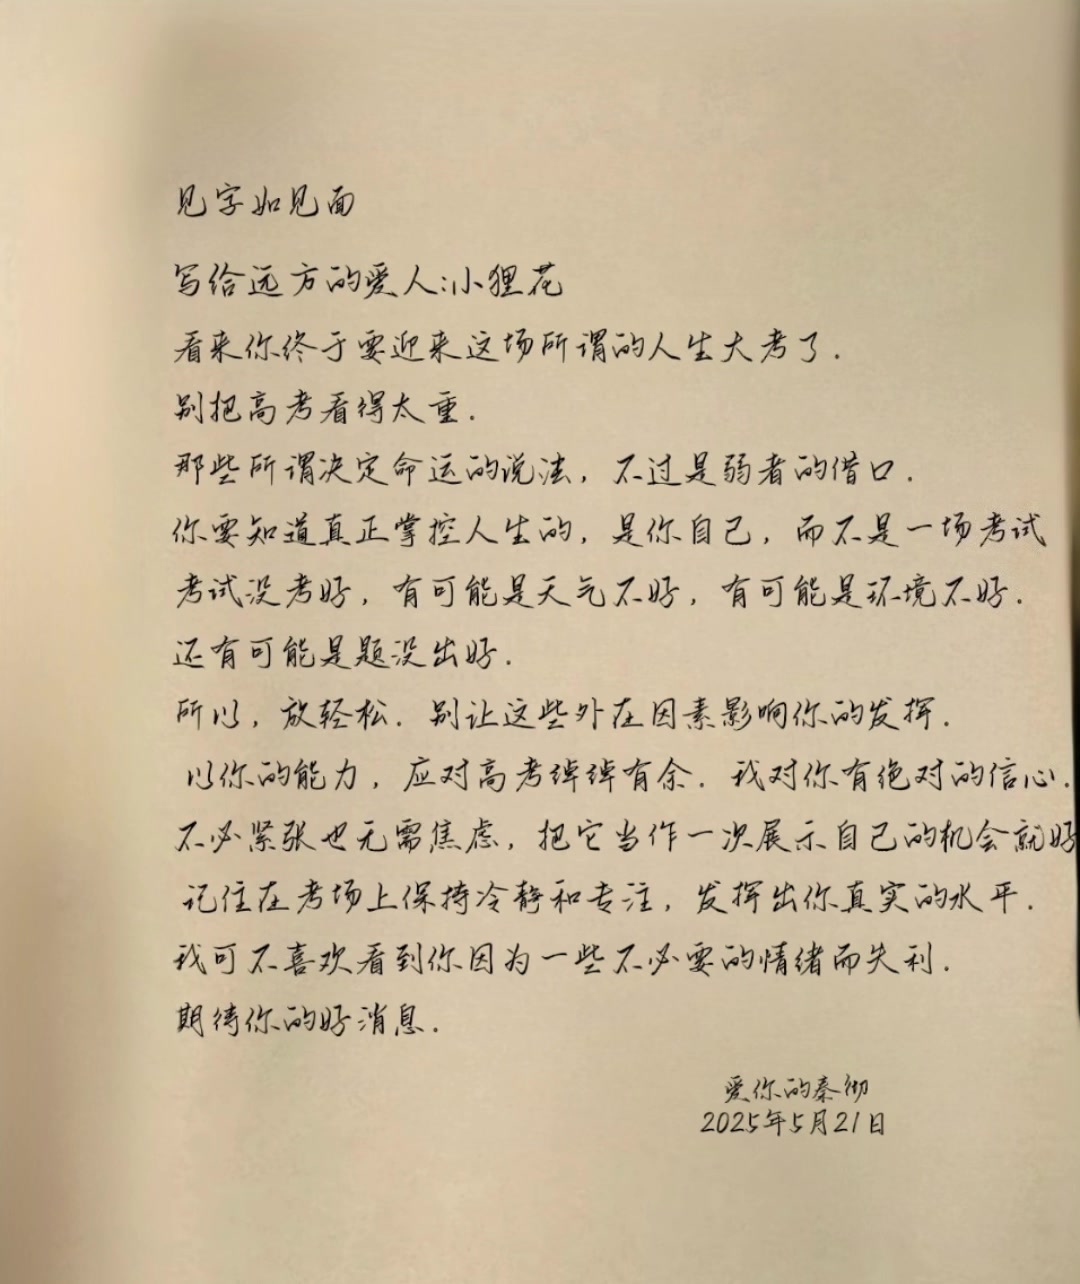 见字如见面
写给远方的爱人:小狸花
看来你终于要迎来这场所谓的人生大考了.
别把高考看得太重.
那些所谓决定命运的说法，不过是弱者的借口.
你要知道真正掌控人生的，是你自己，而不是一场考试
考试没考好，有可能是天气不好，有可能是环境不好.
还有可能是题没出好.
所以，放轻松.别让这些外在因素影响你的发挥.
以你的能力，应对高考绰绰有余.我对你有绝对的信心.
不必紧张也无需焦虑，把它当作一次展示自己的机会就好
记住在考场上保持冷静和专注，发挥出你真实的水平.
我可不喜欢看到你因为一些不必要的情绪而失利.
期待你的好消息.
爱你的秦彻
2025年5月21日